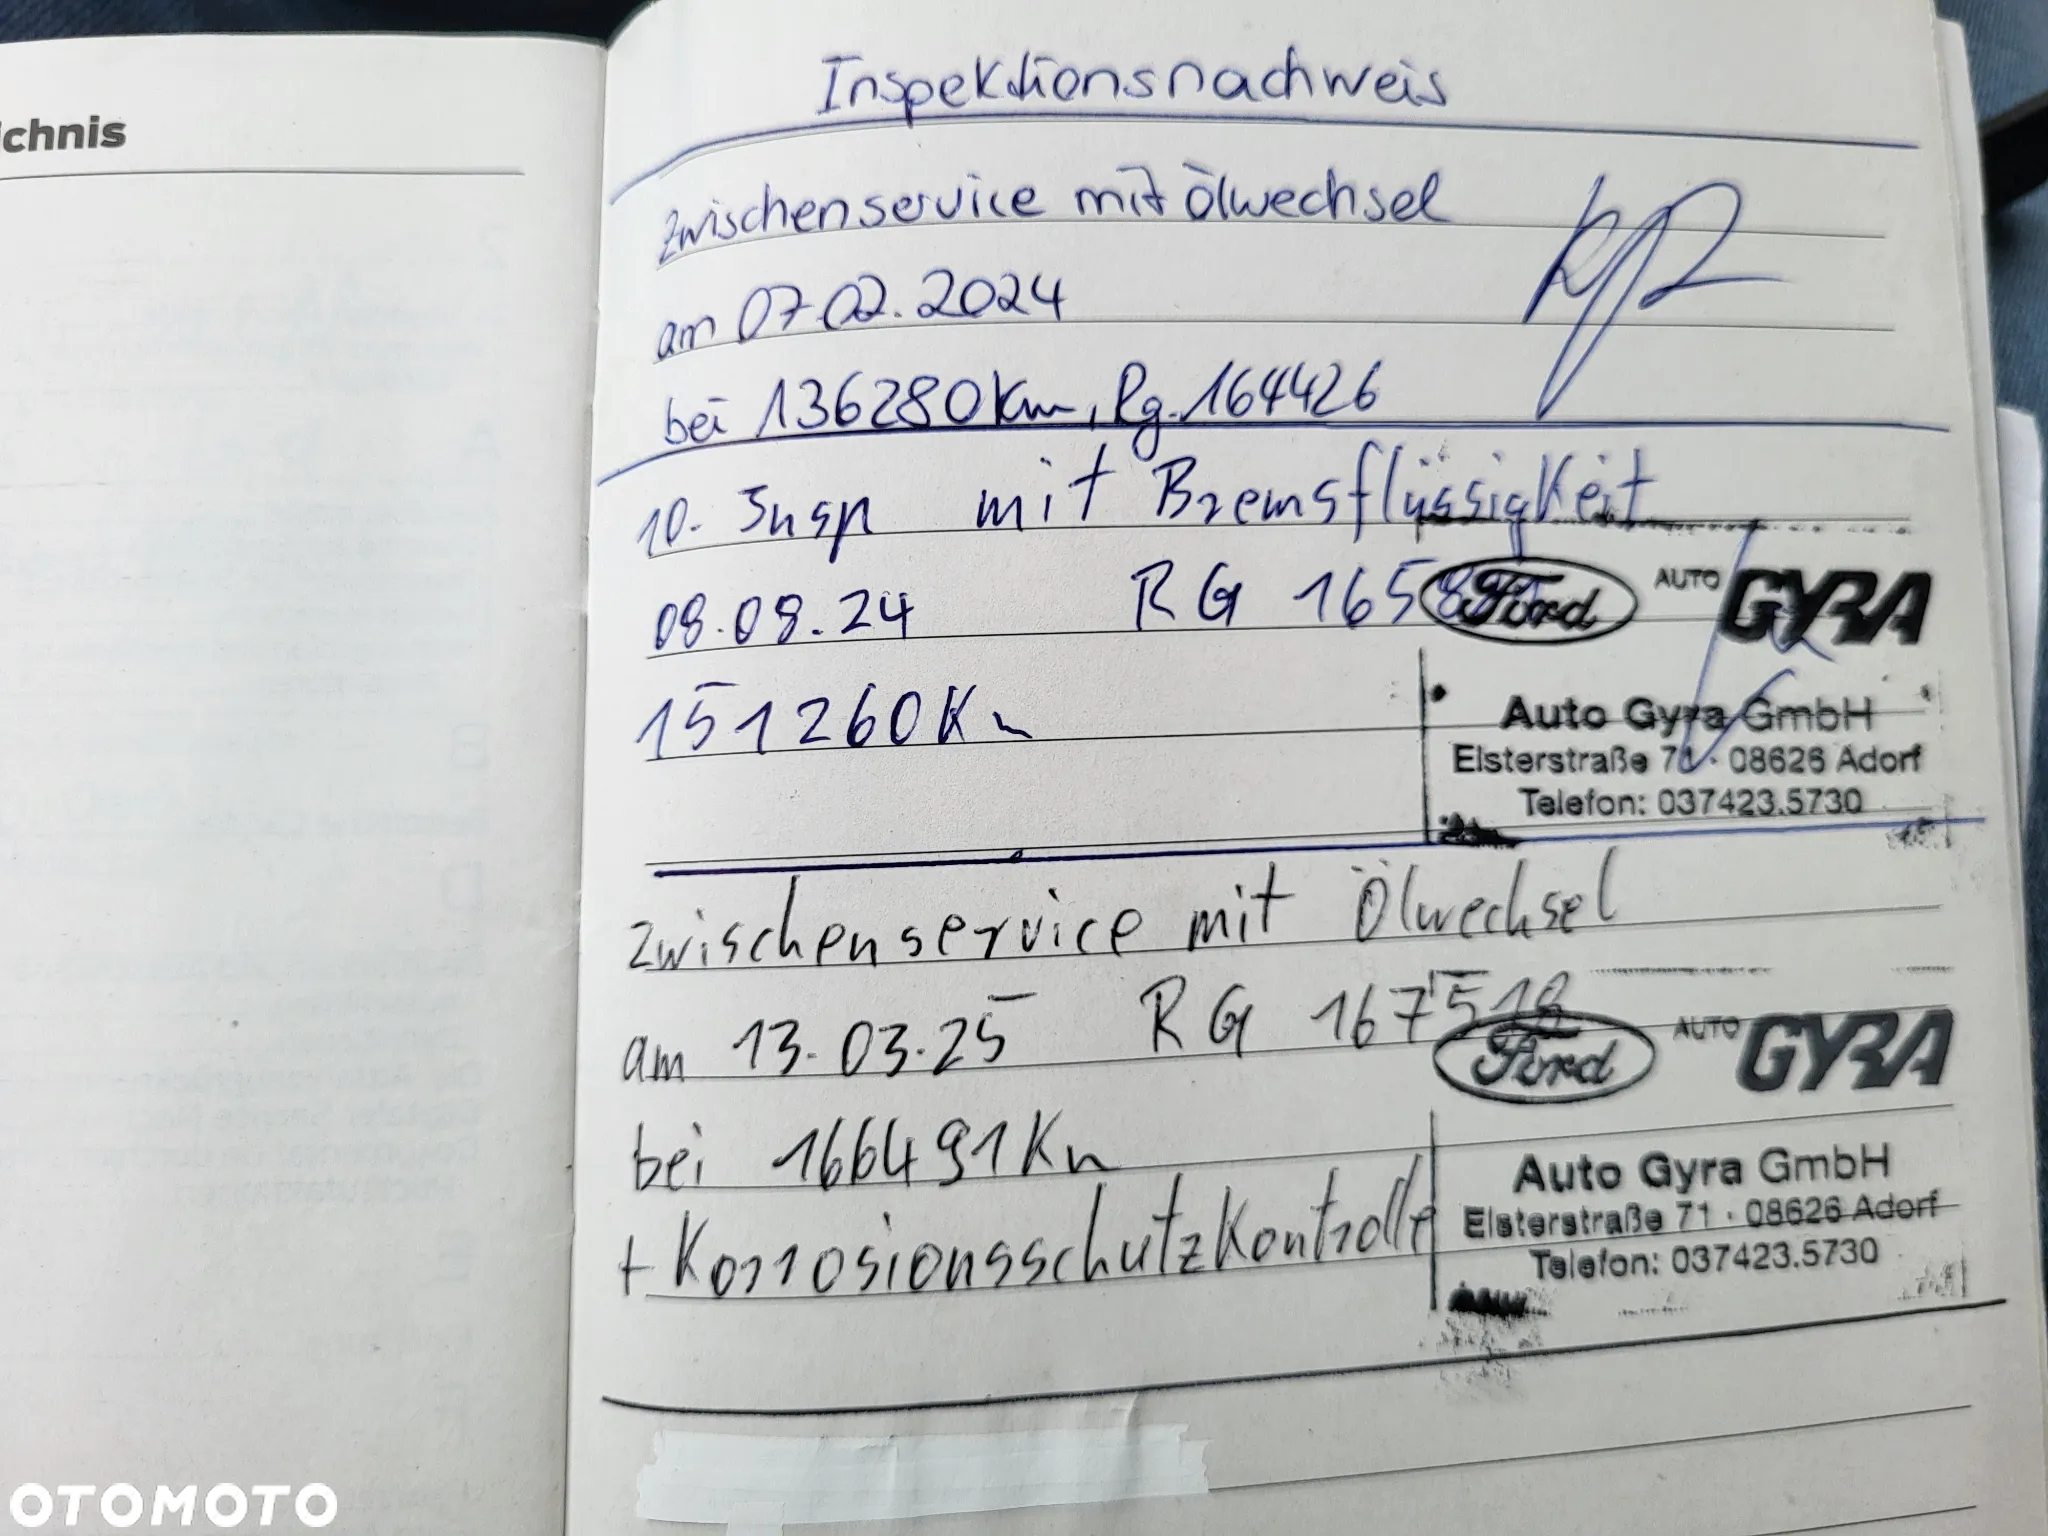 chnis
Inspektionsnachweis
Zwischenservice mit Ölwechsel
am 07.02.2024
bei 136280 Km, Rg. 164426
10. Insp mit Bremsflüssigkeit
08.08.24 RG
Ford AUTO GYRA
151260 Km
Auto Gyra GmbH
Elsterstraße 71 · 08626 Adorf
Telefon: 037423.5730
Zwischenservice mit Ölwechsel
am 13.03.25 RG 167518
Ford AUTO GYRA
bei 166491 Km
+ Korrosionsschutzkontrolle
Auto Gyra GmbH
Elsterstraße 71 · 08626 Adorf
Telefon: 037423.5730
OTOMOTO